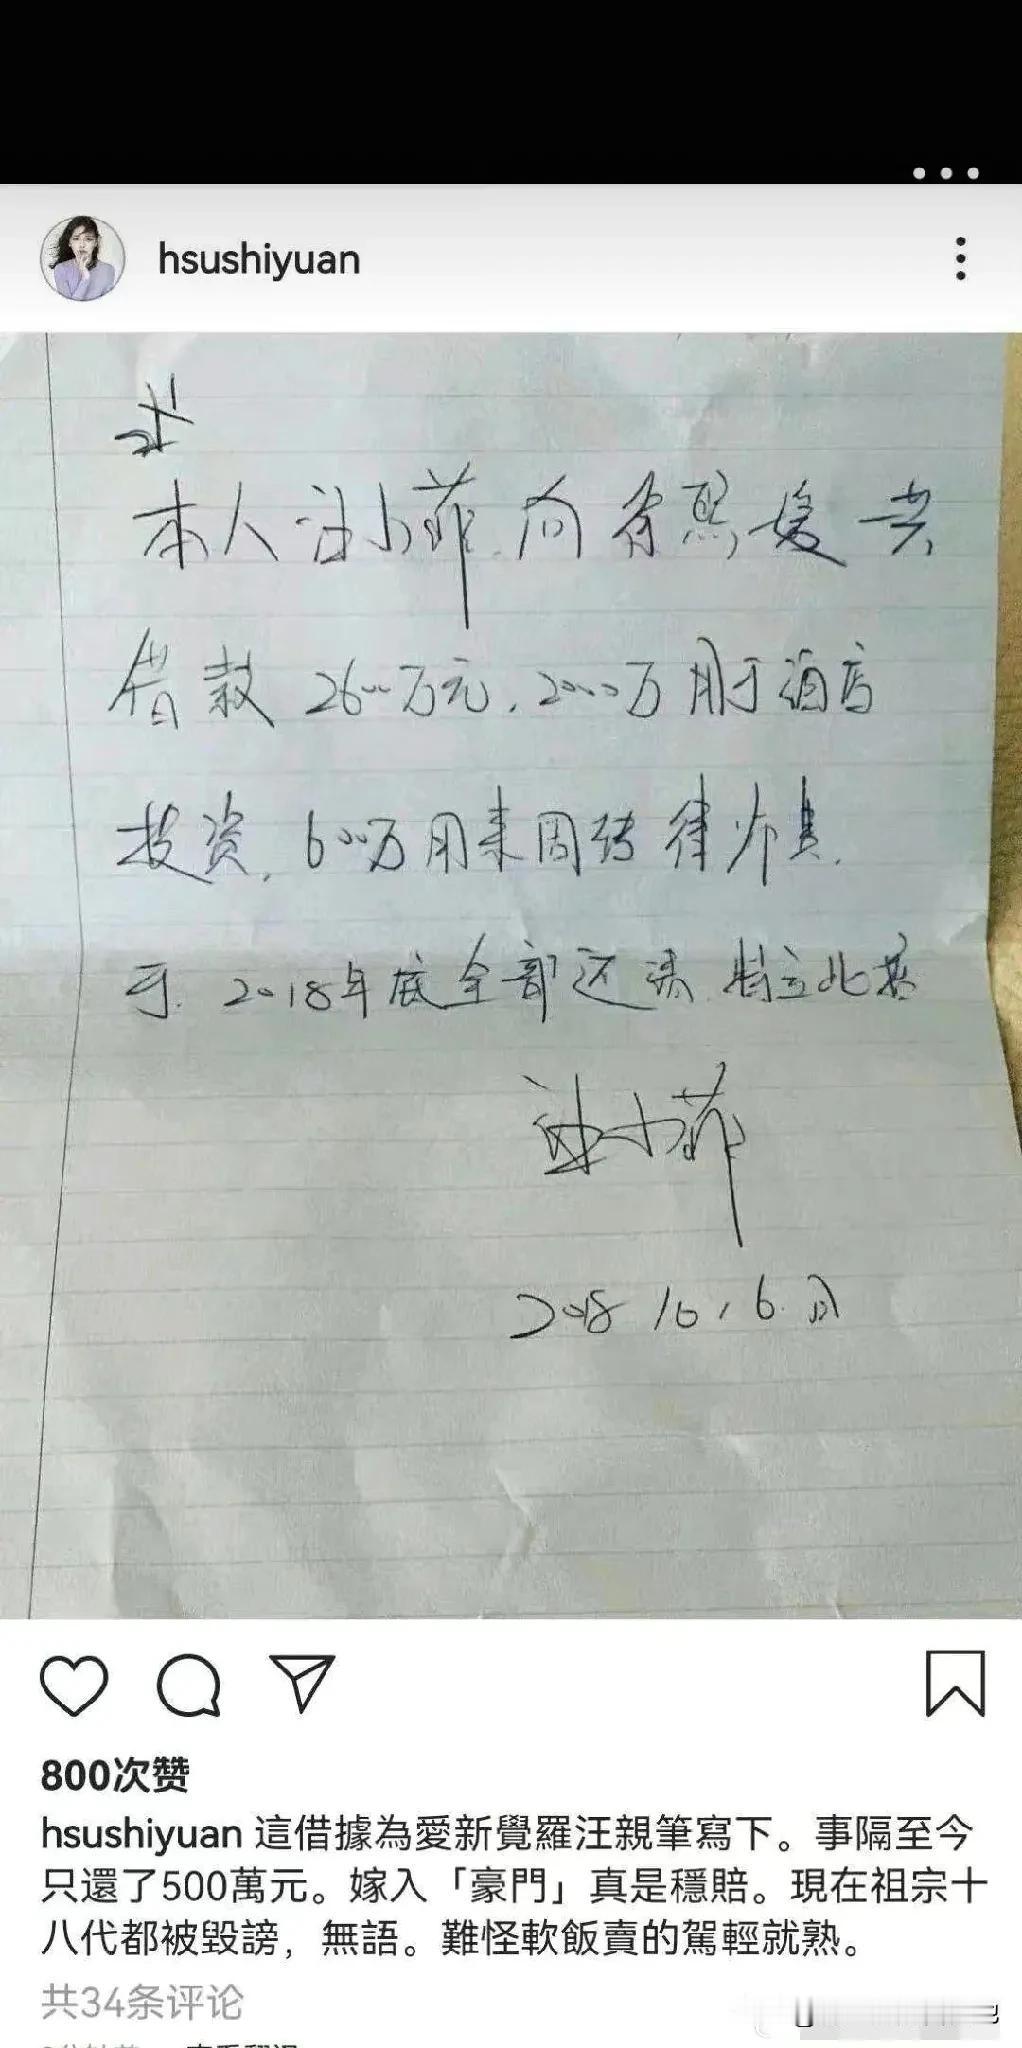 hsushiyuan
本人汪小菲向徐熙媛共
借款2600万元,2000万用于酒店
投资,600万用来周转律师费,
于2018年底全部还清,特立此据
汪小菲
2018 10,6.
800次赞
hsushiyuan 這借據為愛新覺羅汪親筆寫下。事隔至今
只還了500萬元。嫁入「豪門」真是穩賠。現在祖宗十
八代都被毀謗，無語。難怪軟飯賣的駕輕就熟。
共34条评论